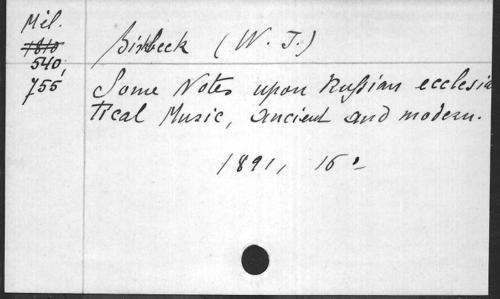 Mel.
1810
540,
755
Birkbeck (W. J.)
Some Notes upon Russian ecclesia
tical Music, ancient and modern.
1891, 16°